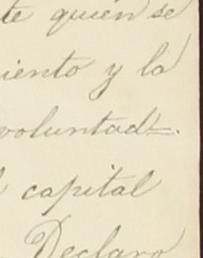 te quién se
iento y la
voluntad=.
l capital
Declaro